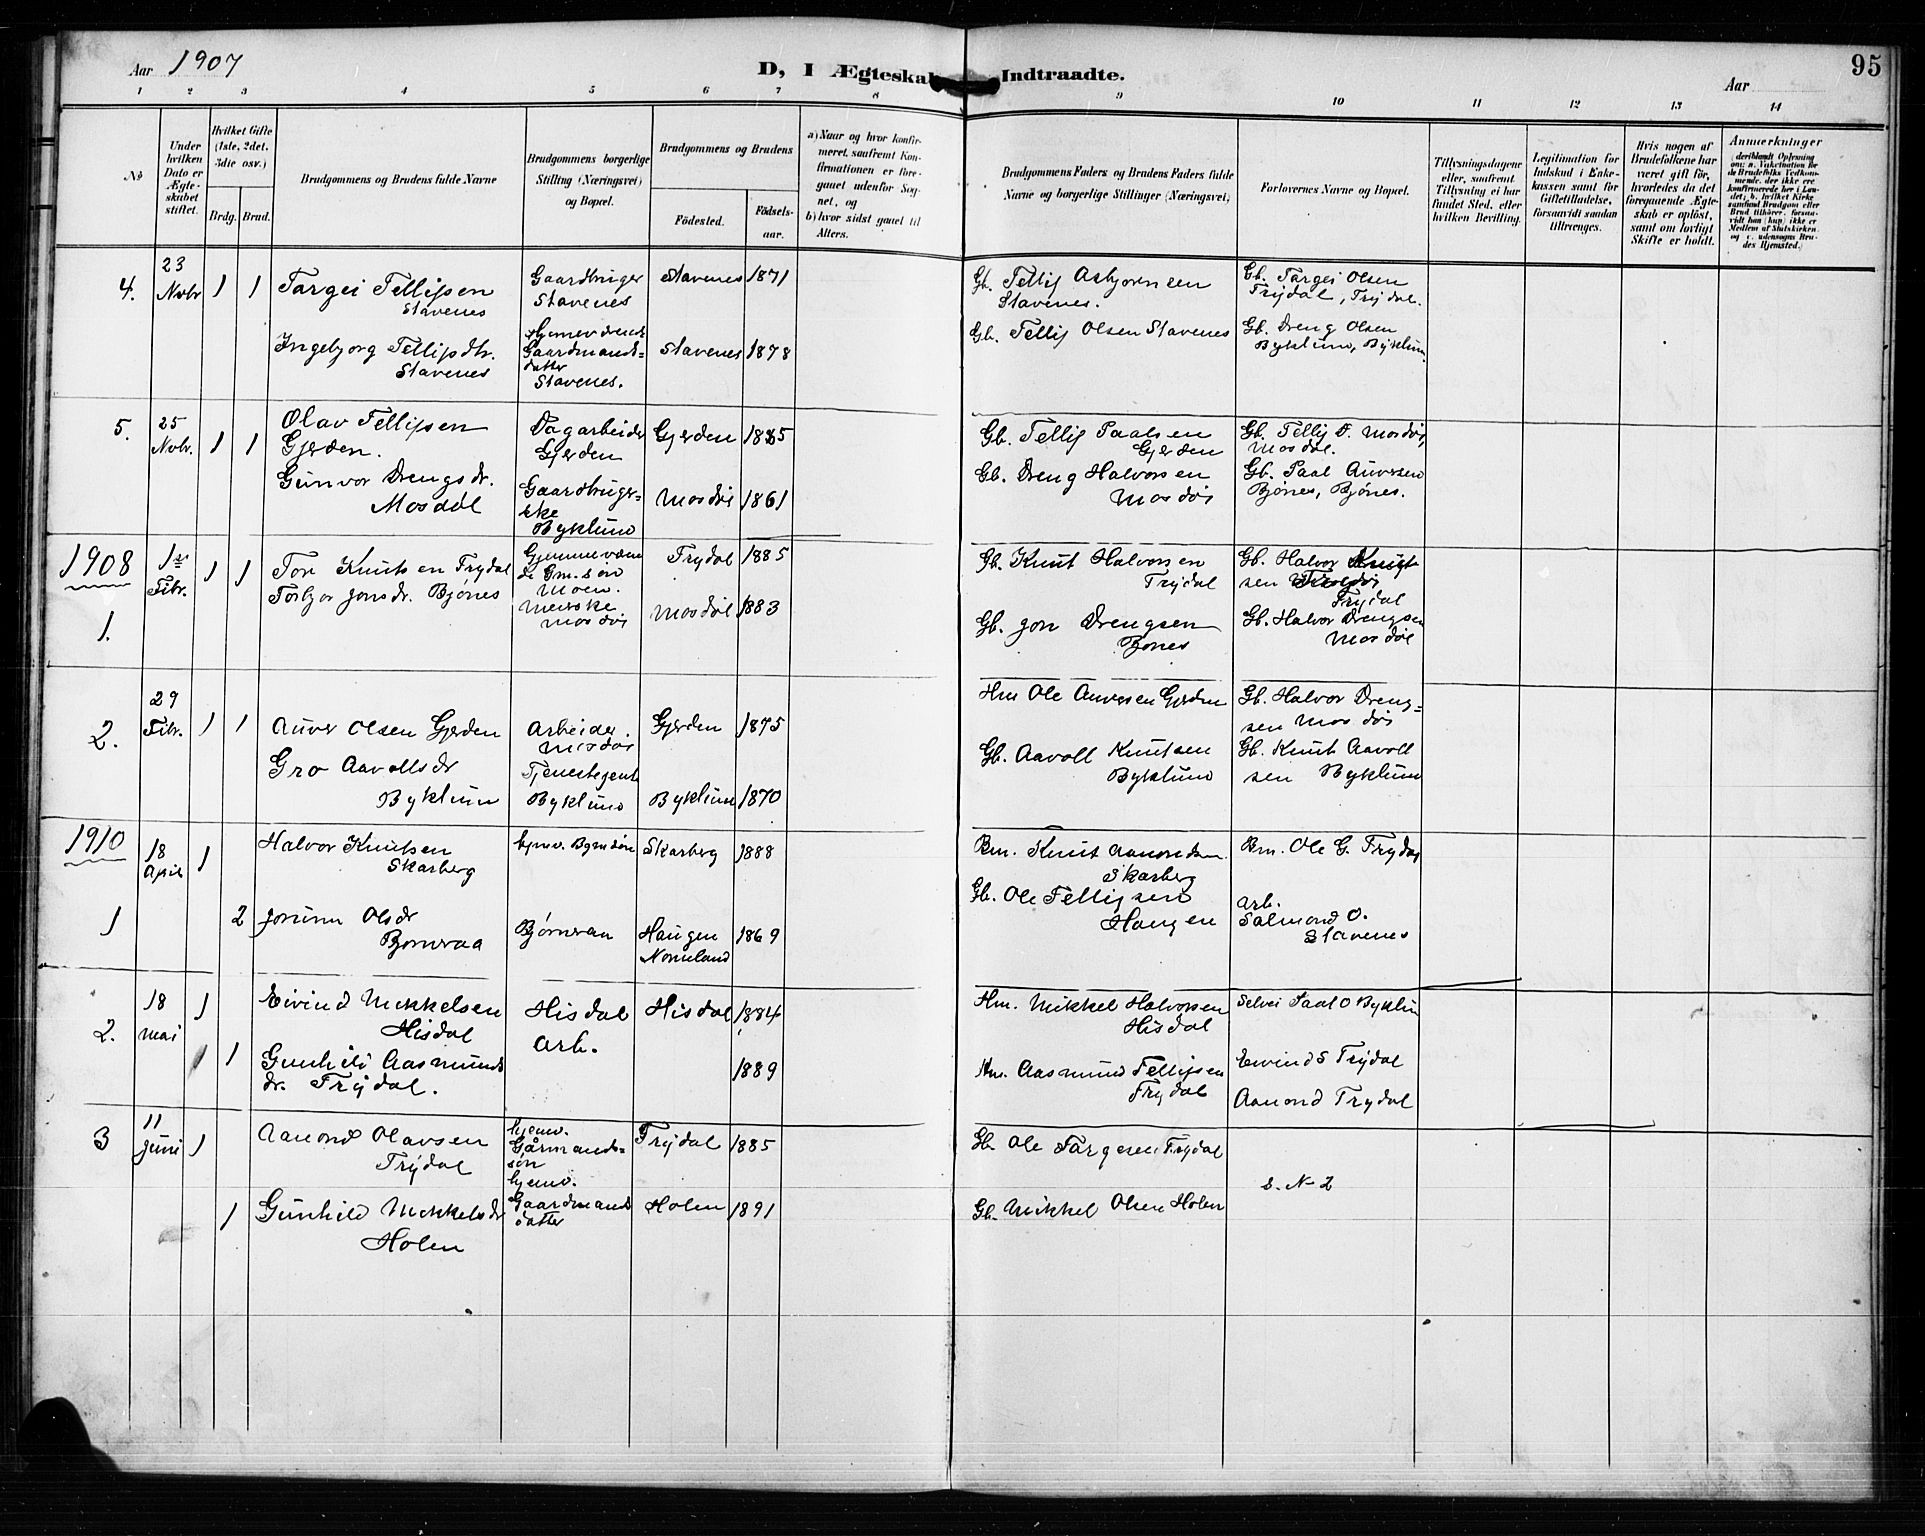 Aar 1907
D, I Ægteskab Indtraadte.
Aar
95
1 2 3 4 5 6 7 8 9 10 11 12 13 14
No
Under hvilken Dato er Ægteskabet stiftet.
Hvilket Gifte (1ste, 2det, 3die osv.)
Brdg. Brud.
Brudgommens og Brudens fulde Navne
Brudgommens borgerlige Stilling (Næringsvei) og Bopæl.
Brudgommens og Brudens
Födested.
Födsels-aar.
a) Naar og hvor konfirmeret, saafremt Konfirmationen er foregaaet udenfor Sognet, og
b) hvor sidst gaaet til Alters.
Brudgommens Faders og Brudens Faders fulde Navne og borgerlige Stillinger (Næringsvei)
Forlovernes Navne og Bopæl.
Tillysningsdagene eller, saafremt Tillysning ei har fundet Sted, efter hvilken Bevilling.
Legitimation for Indskud i Enkekassen samt for Giftetilladelse, forsaavidt saadan tiltrænges.
Hvis nogen af Brudefolkene har været gift för, hvorledes da det foregaaende Ægteskab er oplöst, samt om lovligt Skifte er holdt.
Anmærkninger
4.
23 Novbr
1 1
Targei Tellifsen
Stavenes
Gaardbruger
Stavenes
Stavenes 1871
Gb. Tellif Asbjørnsen
Stavenes.
Gb. Targei Olsen
Trydal, Trydal.
Ingebjorg Tellifsdtr.
Stavenes
Hjemværende
Gaardmands-
datter
Stavenes.
Stavenes 1878
Gb. Tellif Olsen Stavenes
Gb. Dreng Olsen
Byklum, Byklum
5.
25 Novbr.
1 1
Olav Tellifsen
Gjerden.
Dagarbeider
Gjerden
Gjerden 1885
Gb. Tellif Paalsen
Gjerden
Gb. Tellif D. Mosdøl,
Mosdøl.
Gunvor Drengsdr.
Mosdøl
Gaardbruger-
ske
Byklum
Mosdøl 1861
Gb. Dreng Halvorsen
Mosdøl
Gb. Paal Auversen
Bjônes, Bjônes.
1908
1.
1ste Febr.
1 1
Tore Knutsen Trydal
Torbjor Jonsdr. Bjônes
Gm.søn
Moen.
Meieske
Mosdøl
Trydal 1885
Mosdøl 1883
Gb. Knut Halvorsen
Trydal
Gb. Halvor Knut
sen
Trydal
Gb. Jon Drengsen
Bjones
Gb. Halvor Drengsen
Mosdøl
2.
29 Febr.
1 1
Auver Olsen Gjerden
Arbeider
Mosdøl
Gjerden 1875
Hm Ole Auversen Gjerden
Gb. Halvor Dreng-
sen Mosdøl
Gro Aavollsdr
Byklum
Tjenestegent
Byklum
Byklum 1870
Gb. Aavoll Knutsen
Byklum
Gb. Knut Aavoll
sen Byklum
1910
1
18 April
1
Halvor Knutsen
Skarberg
hjmv. Bgmdsøn
Skarberg 1888
Bm. Knut Aamondsen
Skarberg
Bm. Ole G. Trydal
2
Jorunn Olsdr
Bjornraa
Bjørnraa
Haugen
Nomeland
1869
Gb. Ole Tellifsen
Haugen
arb.
Salmond O.
Stavenes
2.
18 Mai
1
Eivind Mikkelsen
Hisdal
Hisdal
arb.
Hisdal 1884
Hm. Mikkel Halvorsen
Hisdal
Selvei Paal O Byklum
1
Gunhild Aasmunds
dr. Trydal.
1889
Hm. Aasmund Tellifsen
Trydal
Eivind S Trydal
Aamond Trydal
3
11 Juni
1
Aamond Olavsen
Trydal
hjemv.
Gårmands-
søn
Trydal 1885
Gb. Ole Targesen Trydal
s. N 2
1
Gunhild Mikkelsdr
Holen
hjemv.
Gaardmands
datter
Holen 1891
Gb. Mikkel Olsen Holen